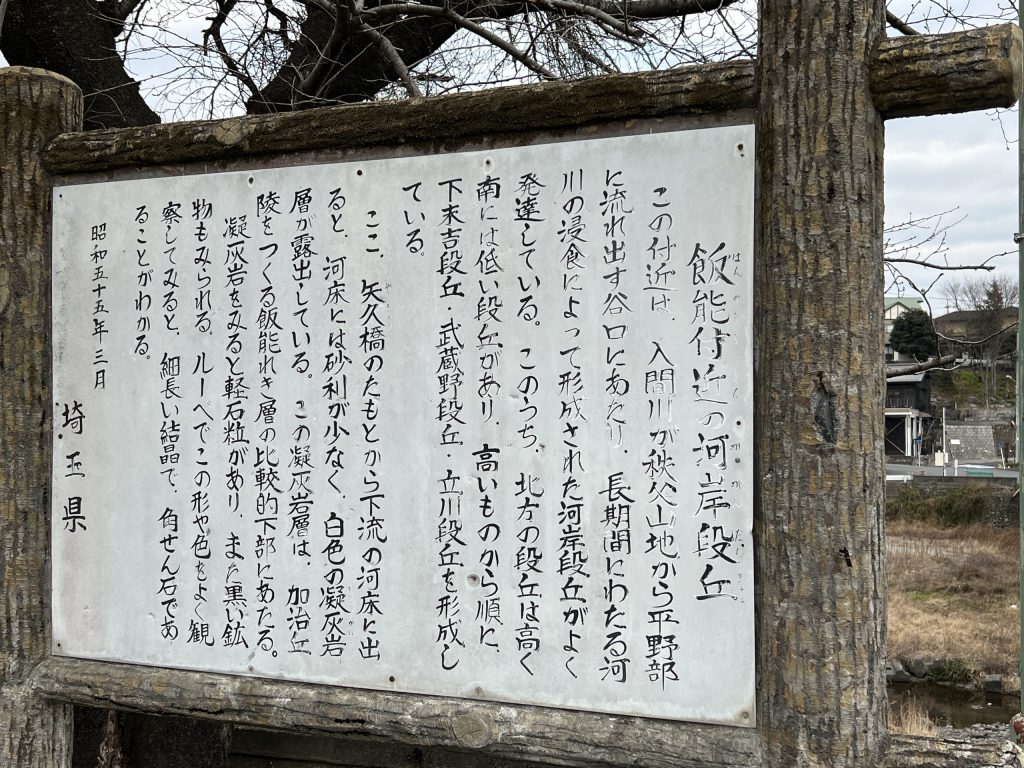 飯能付近の河岸段丘
この付近は、入間川が秩父山地から平野部
に流れ出す谷口にあたり、長期間にわたる河
川の浸食によって形成された河岸段丘がよく
発達している。このうち、北方の段丘は高く
南には低い段丘があり、高いものから順に、
下末吉段丘・武蔵野段丘・立川段丘を形成し
ている。
ここ、矢久橋のたもとから下流の河床に出
ると、河床には砂利が少なく、白色の凝灰岩
層が露出している。この凝灰岩層は、加治丘
陵をつくる飯能れき層の比較的下部にあたる。
凝灰岩をみると軽石粒があり、また黒い鉱
物もみられる。ルーペでこの形や色をよく観
察してみると、細長い結晶で、角せん石であ
ることがわかる。
昭和五十五年三月
埼玉県